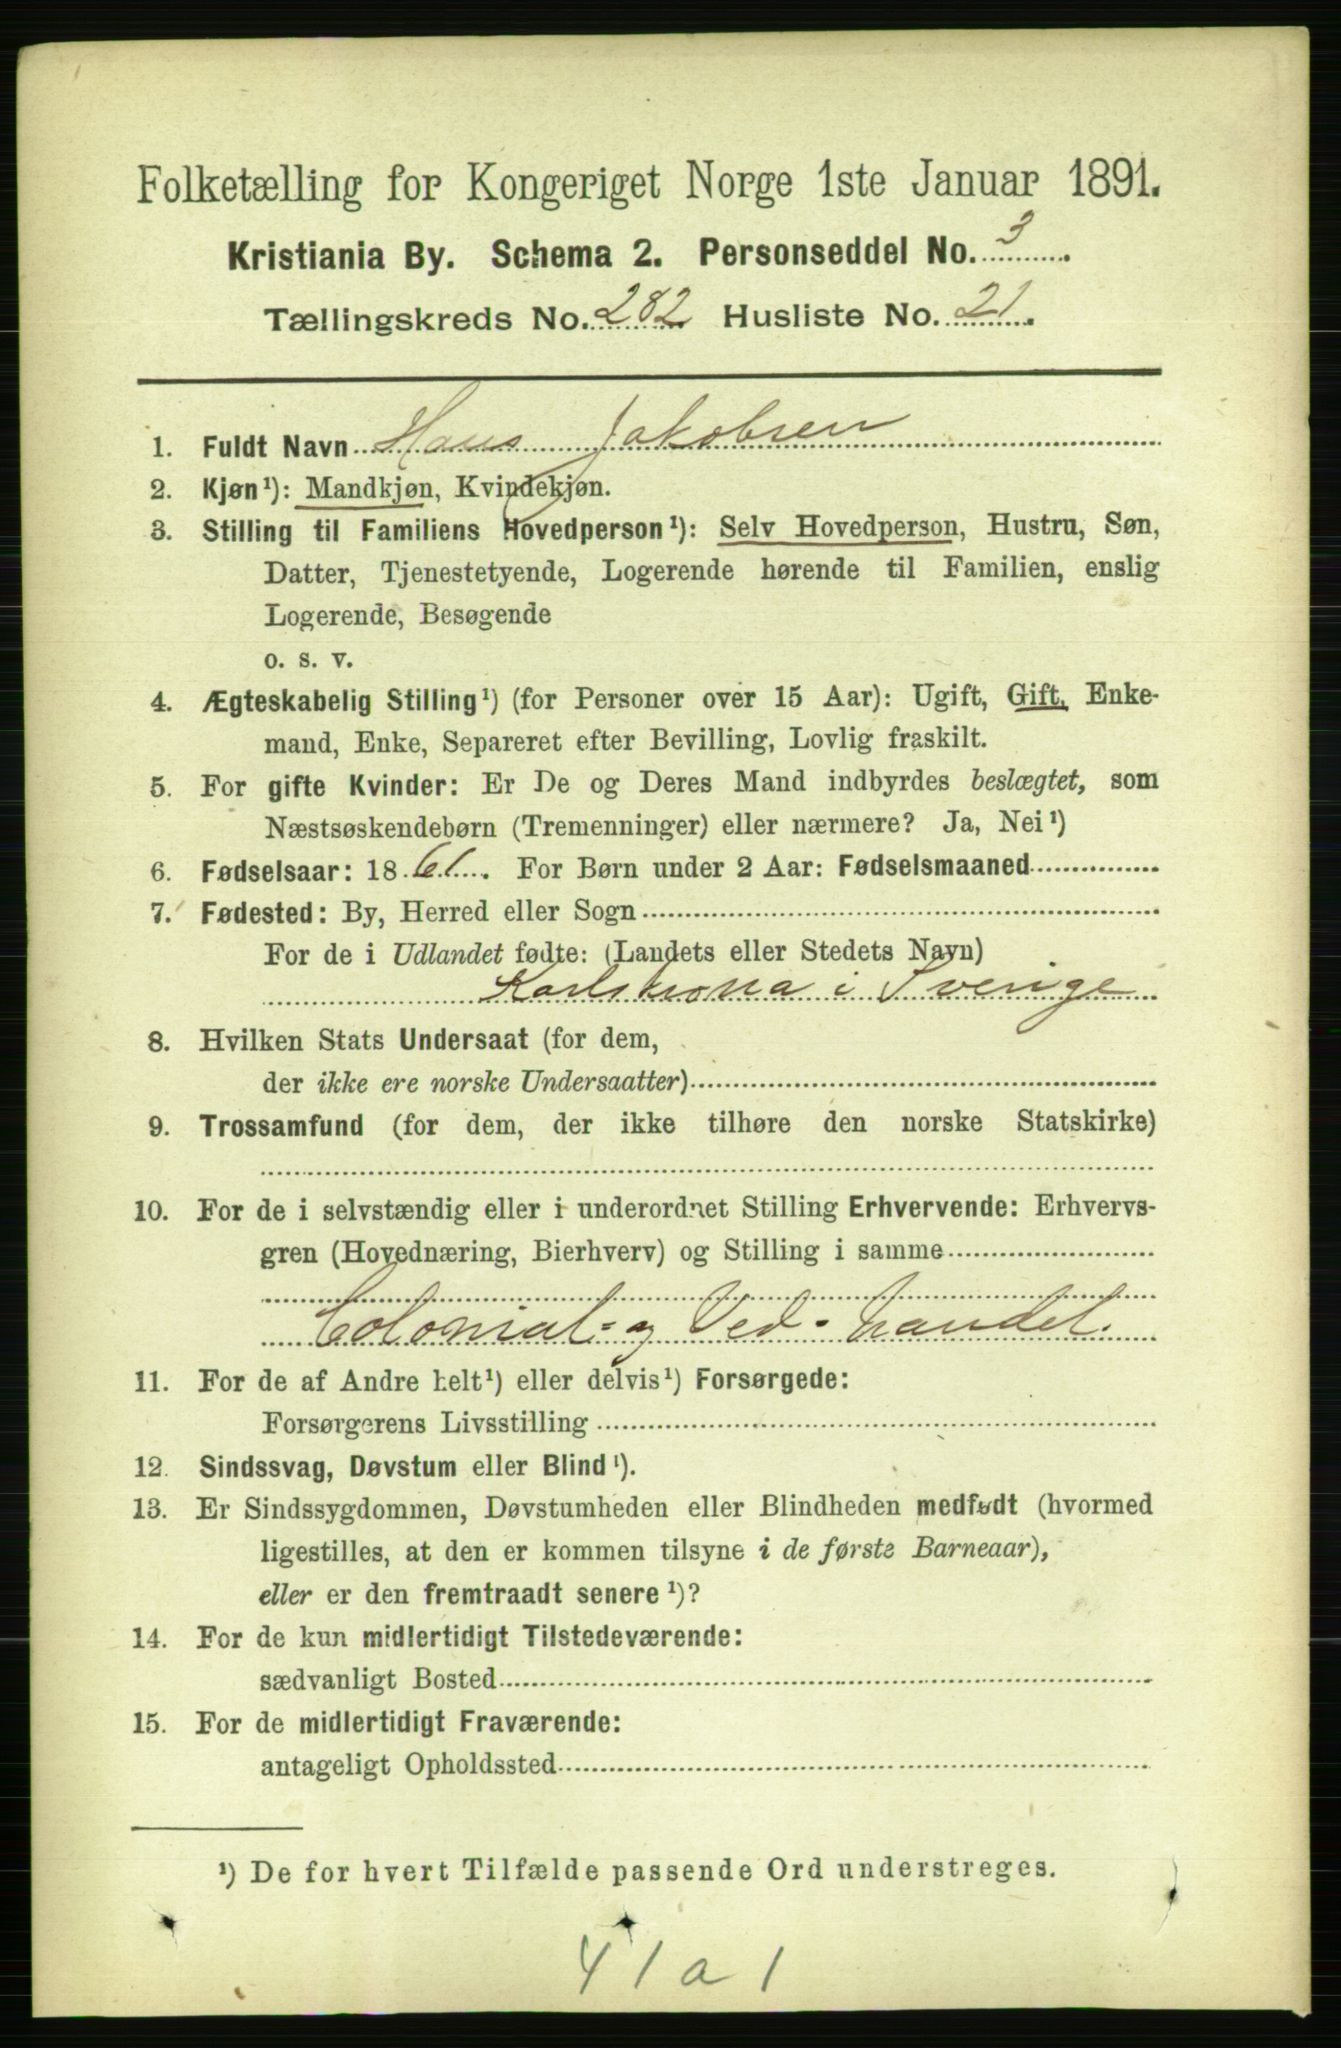 Folketælling for Kongeriget Norge 1ste Januar 1891.
Kristiania By. Schema 2. Personseddel No. 3.
Tællingskreds No. 282. Husliste No. 21.
1. Fuldt Navn Hans Jakobsen
2. Kjøn¹): Mandkjøn, Kvindekjøn.
3. Stilling til Familiens Hovedperson¹): Selv Hovedperson, Hustru, Søn,
Datter, Tjenestetyende, Logerende hørende til Familien, enslig
Logerende, Besøgende
o. s. v.
4. Ægteskabelig Stilling¹) (for Personer over 15 Aar): Ugift, Gift, Enke-
mand, Enke, Separeret efter Bevilling, Lovlig fraskilt.
5. For gifte Kvinder: Er De og Deres Mand indbyrdes beslægtet, som
Næstsøskendebørn (Tremenninger) eller nærmere? Ja, Nei¹)
6. Fødselsaar: 1861. For Børn under 2 Aar: Fødselsmaaned
7. Fødested: By, Herred eller Sogn
For de i Udlandet fødte: (Landets eller Stedets Navn)
Karlskrona i Sverige
8. Hvilken Stats Undersaat (for dem,
der ikke ere norske Undersaatter)
9. Trossamfund (for dem, der ikke tilhøre den norske Statskirke)
10. For de i selvstændig eller i underordnet Stilling Erhvervende: Erhvervs-
gren (Hovednæring, Bierhverv) og Stilling i samme
Colonial- og Ved-handel.
11. For de af Andre helt¹) eller delvis¹) Forsørgede:
Forsørgerens Livsstilling
12. Sindssvag, Døvstum eller Blind¹).
13. Er Sindssygdommen, Døvstumheden eller Blindheden medfødt (hvormed
ligestilles, at den er kommen tilsyne i de første Barneaar),
eller er den fremtraadt senere¹)?
14. For de kun midlertidigt Tilstedeværende:
sædvanligt Bosted
15. For de midlertidigt Fraværende:
antageligt Opholdssted
¹) De for hvert Tilfælde passende Ord understreges.
41 a 1